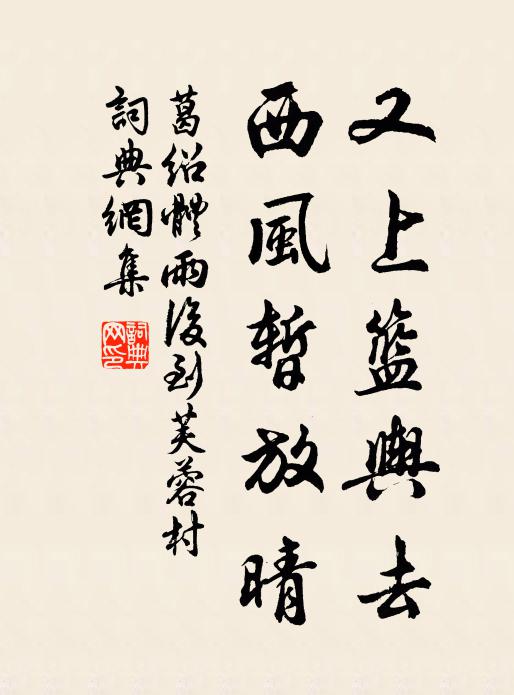 又上籃輿去
西風暫放晴
葛紹體雨後到芙蓉村
詞典網集
詞典網印